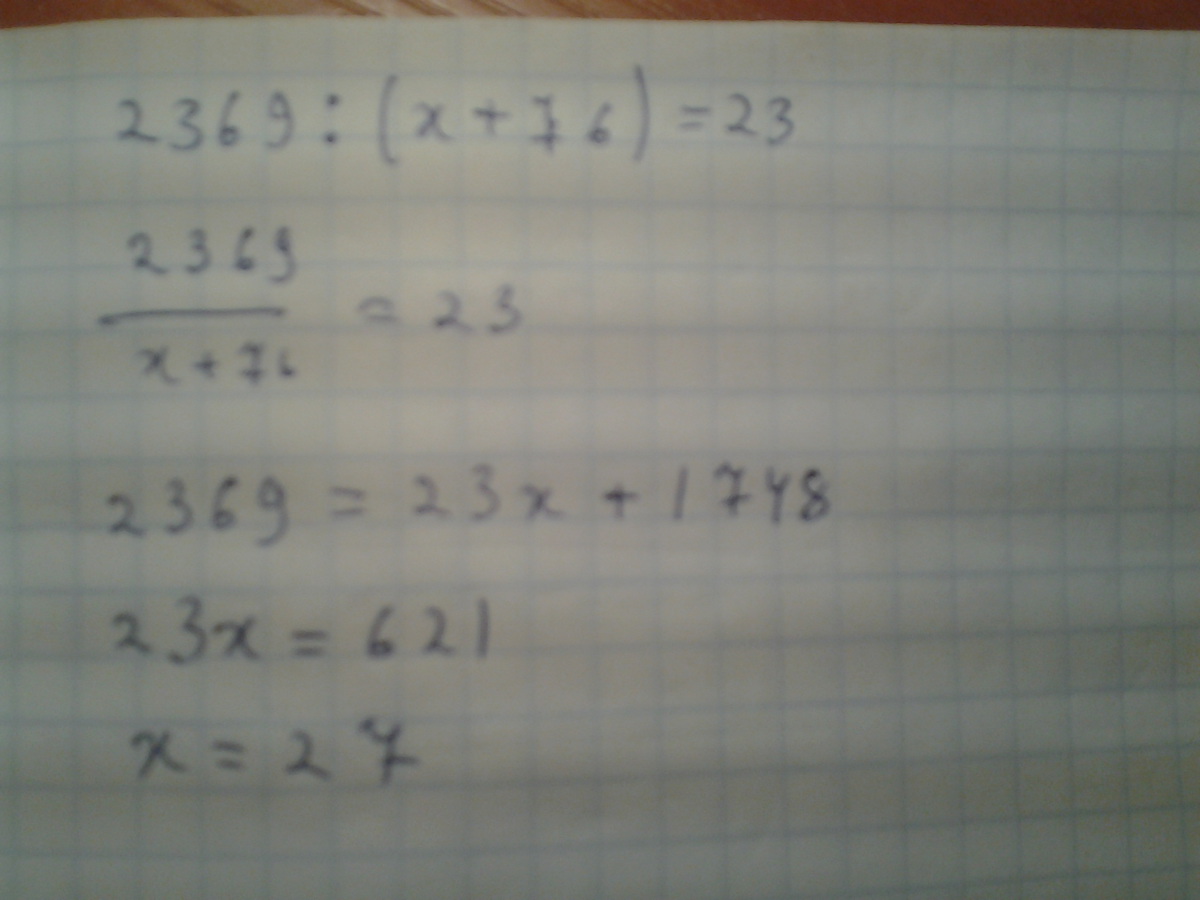 2369 : (x + 76) = 23
2369
x + 76
= 23
2369 = 23x + 1748
23x = 621
x = 27